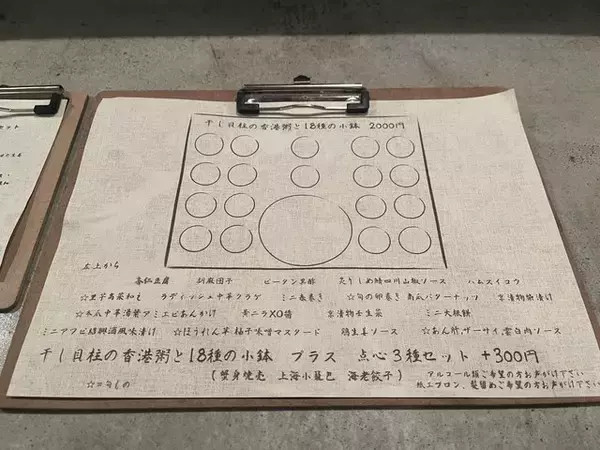 セット
干し貝柱の香港粥と18種の小鉢 2000円
左上から
香私豆腐 胡麻団子 ピータン黒酢 炙りしめ鯖四川山椒ソース ハムスイコウ
☆里子高菜和え ラディッシュ中華クラゲ ミニ春巻き ☆旬の卵巻き 南瓜バターナッツ 京漬物販漬け
☆冬瓜中華湯葉アミエビあんかけ 黄ニラXO醤 京漬物壬生菜 ミニ大根餅
ミニアワビ紹興酒風味漬け ☆ほうれん草 柚子味噌マスタード 鶏生姜ソース ☆あん肝、ザーサイ、雲白肉ソース
干し貝柱の香港粥と18種の小鉢 プラス 点心3種セット +300円
(蟹身焼売 上海小籠包 海老餃子) アルコール類ご希望の方お声がけ下さい
☆=旬もの 紙エプロン、髪留めご希望の方お声がけ下さい